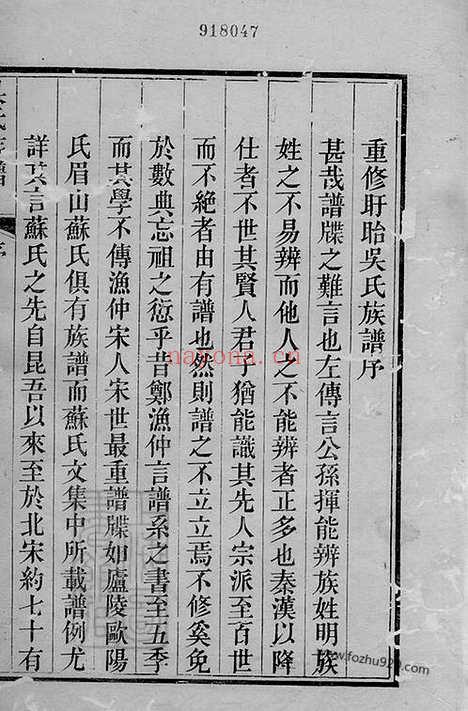 918047
重修盱眙吳氏族譜序
甚哉譜牒之難言也左傳言公孫揮能辨族姓明族
姓之不易辨而他人之不能辨者正多也秦漢以降
仕者不世其賢人君子猶能識其先人宗派至百世
而不絕者由有譜也然則譜之不立立焉不修奚免
於數典忘祖之愆乎昔鄭漁仲言譜系之書至五季
而其學不傳漁仲宋人宋世最重譜牒如廬陵歐陽
氏眉山蘇氏俱有族譜而蘇氏文集中所載譜例尤
詳其言蘇氏之先自昆吾以來至於北宋約七十有
nayona.cn
www.fozhu920.com